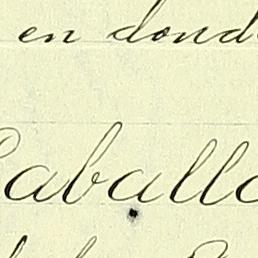 en dond
Caballo